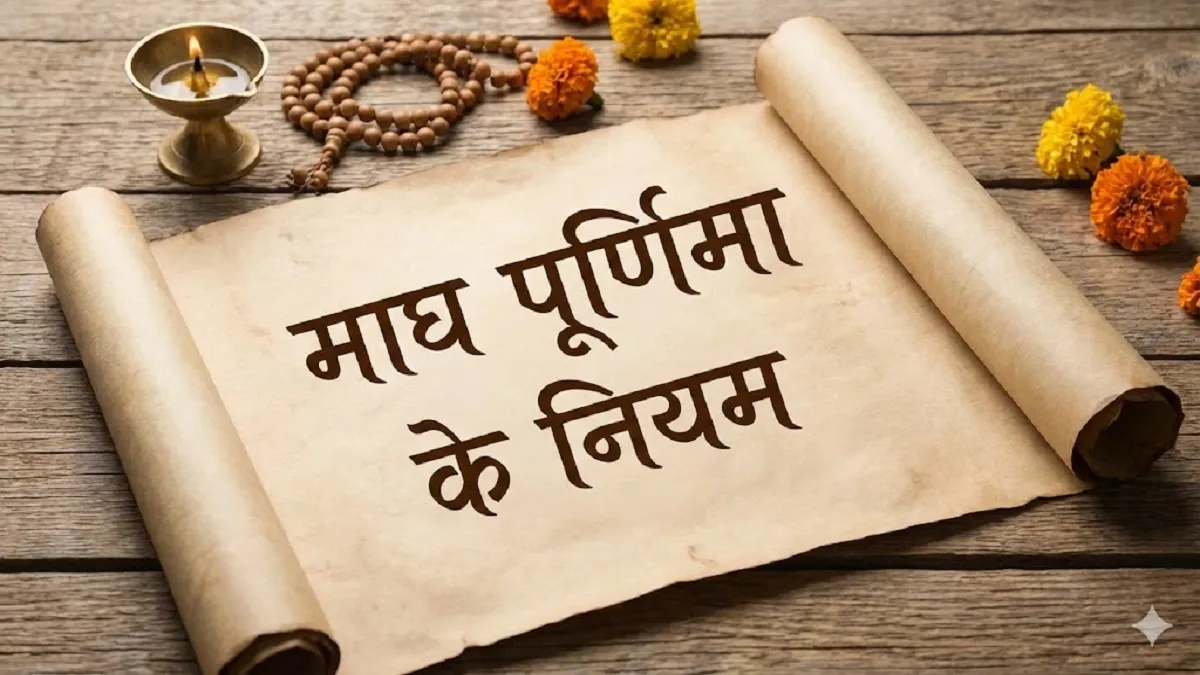 माघ पूर्णिमा
के नियम